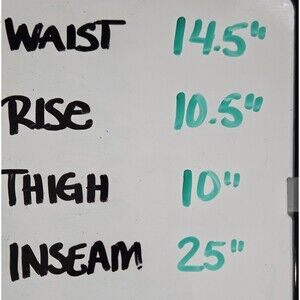 WAIST 14.5"
RISe 10.5"
THIGH 10"
INSEAM 25"